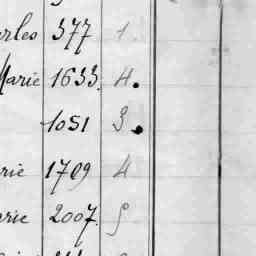 rles 377 1.
Marie 1633. 4.
1051 3.
rie 1709 4
arie 2007. 5